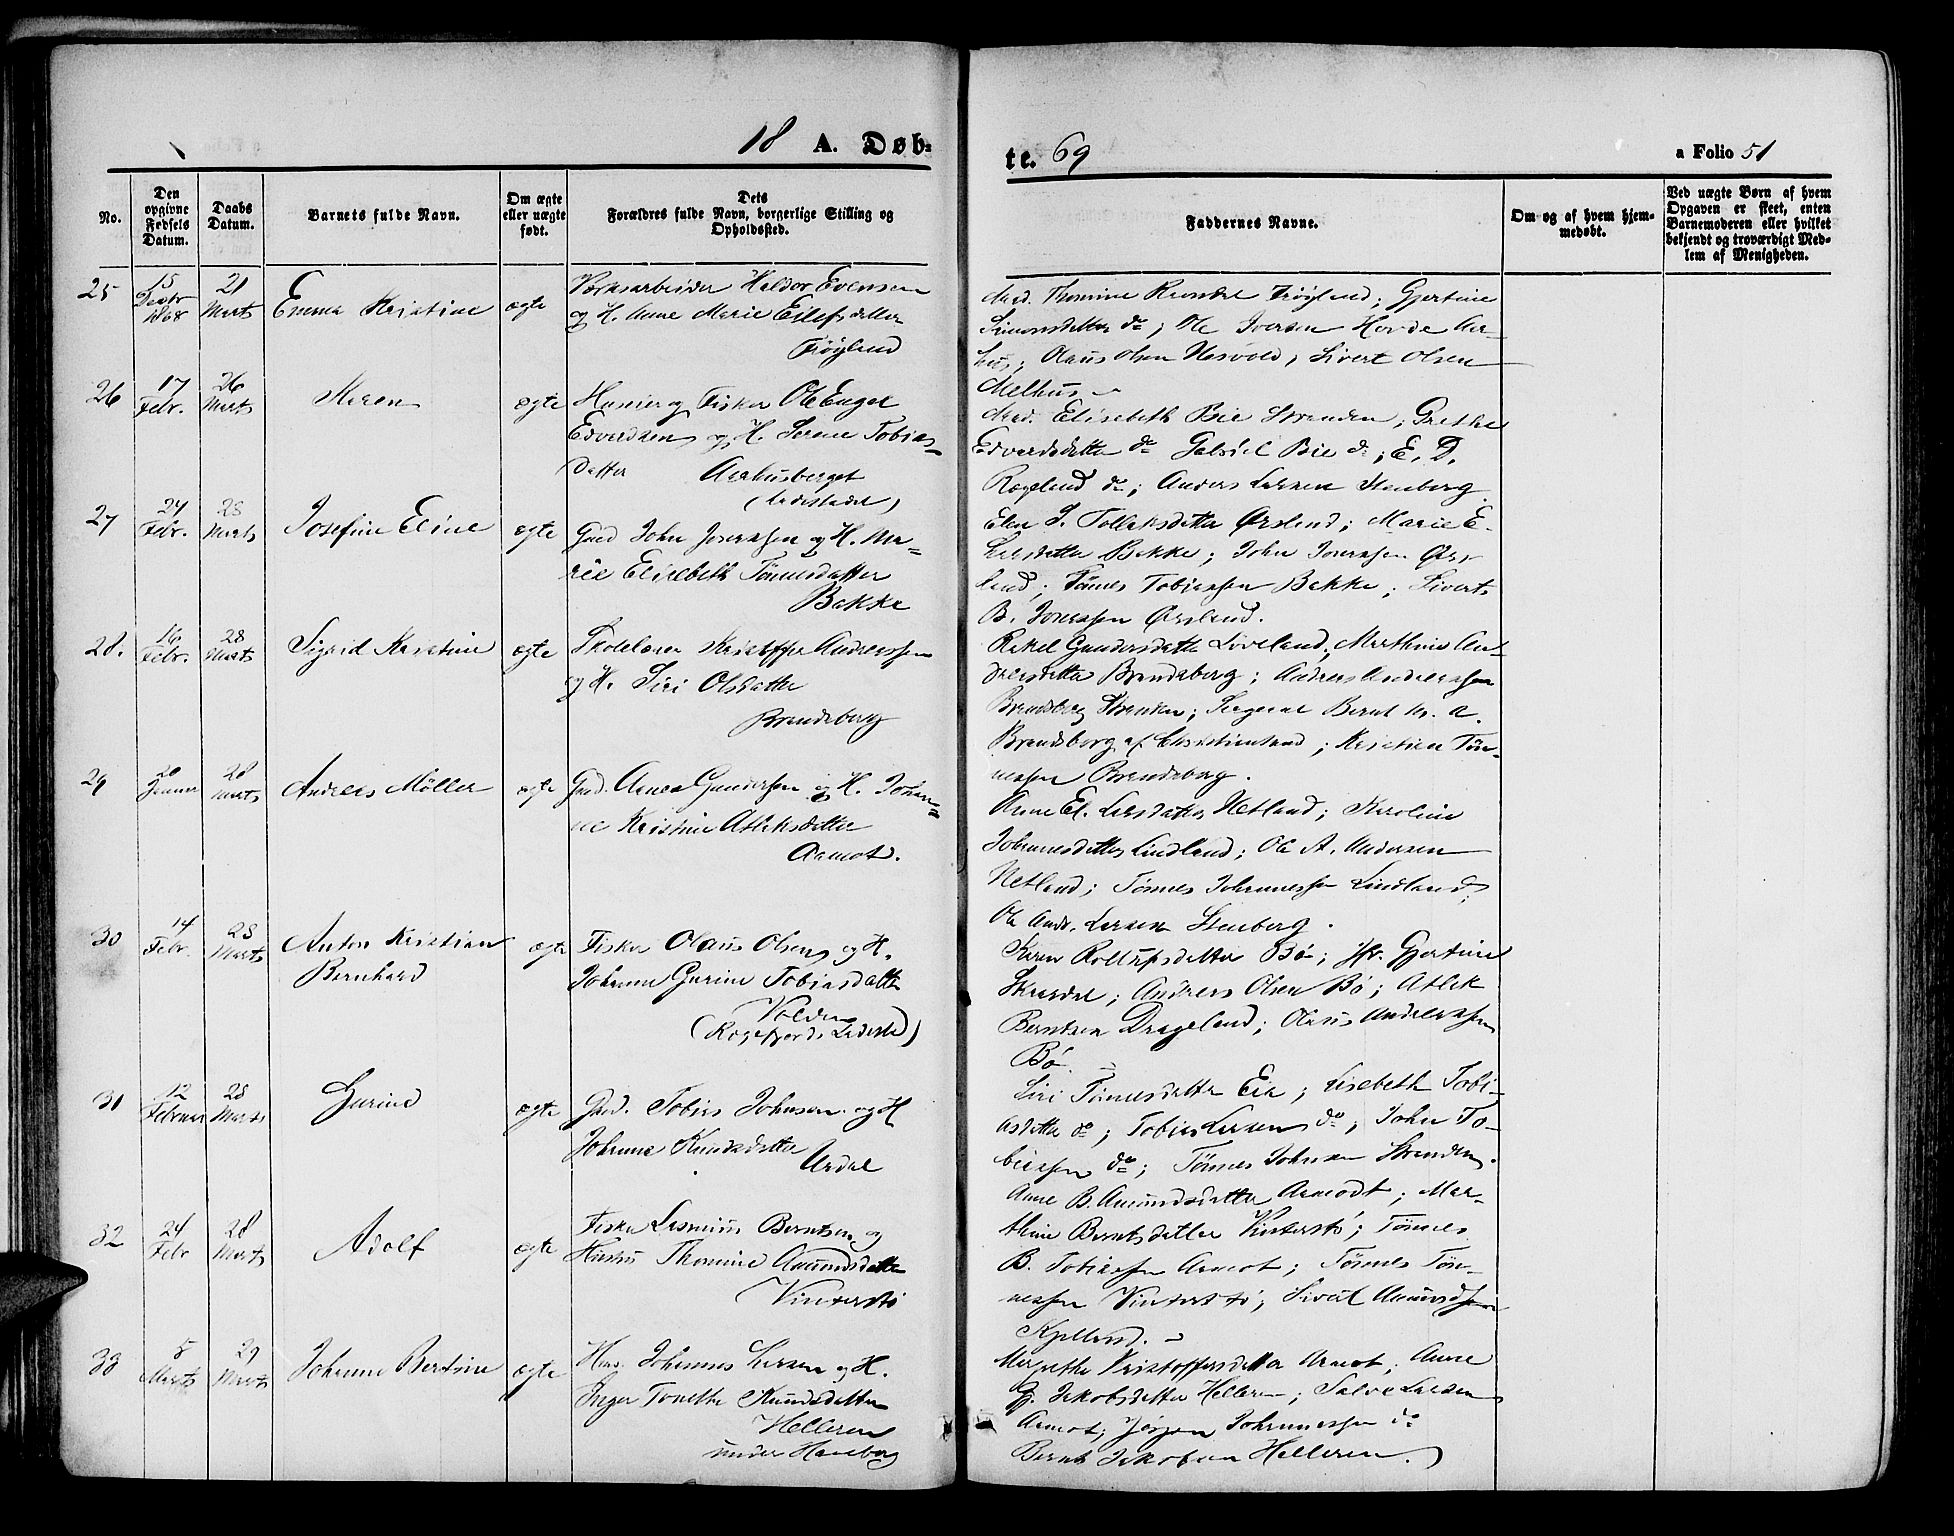 18 A. Døb-
te. 69
a Folio 51
No.
Den opgivne Fødsels Datum.
Daabs Datum.
Barnets fulde Navn.
Om ægte eller uægte født.
Dets Forældres fulde Navn, borgerlige Stilling og Opholdssted.
Faddernes Navne.
Om og af hvem hjem-
medøbt.
Ved uægte Børn af hvem
Opgaven er skeet, enten
Barnemoderen eller hvilket
bekjendt og troværdigt Med-
lem af Menigheden.
25 15 1868 21 Marts Emma Kristine ægte Værksarbeider Haldor Evensen
og H. Anne Marie Eilefsdatter
Frøyland
Mad. Thomine Frøyland; Gjertine
Simonsdatter do; Ole Iversen Hovde Aar-
hus; Olaus Olsen Hesvold, Sivert Olsen
Melhus
26 17 Febr. 26 Marts Maren ægte Husmier og Fisker Ole Enger
Edvardsen og H. Serene Tobias-
datter Aarhusberget
(Ladestedet)
Mad. Elisebeth Bie Stranden; Grethe
Edvardsdatter do Gabriel Bie do; E. D.
Rægeland do; Anders Larsen Stenberg
27 24 Febr. 28 Marts Josefine Eline ægte Grd John Jonassen og H. Ma-
rie Elisebeth Tönnesdatter
Bakke
Elen S. Tolleksdatter Ørsland; Marie E.
Larsdatter Bakke; John Jonassen Ørs-
land; Tönnes Tobiassen Bakke; Siverts
B. Jonassen Ørsland.
28. 16 Febr. 28 Marts Sigrid Kristine ægte Skolelærer Kristoffer Andreassen
og H. Siri Olsdatter
Brendeberg
Rakel Gundersdatter Loveland; Marthine An-
dreasdatter Brendeberg; Andreas Andreassen
Brendeberg Stranden; Sergeant Bernt Kr. A.
Brendeberg af Christiansand; Kristian Tön-
nessen Brendeberg.
29 20 Januar 28 Marts Andreas Möller ægte Grd. Arnes Gundersen og H. Johan-
ne Kristine Atleksdatter
Aamot.
Anne El. Larsdatter Netland; Karoline
Johannesdatter Lindland; Ole A. Andersen
Netland; Tönnes Johannessen Lindland;
Ole Andr. Larsen Stenberg.
30 14 Febr. 28 Marts Anton Kristian
Bernhard ægte Fisker Olaus Olsen og H.
Johanne Gurine Tobiasdatter
Volden
(Rægefjords Ladested)
Karen Rollefsdatter Bö; Jfr. Gjertine
Skarsdal; Andreas Olsen Bö; Atlek
Berntsen Drageland; Olaus Andreassen
Bö
31 12 Februar 28 Marts Gurine ægte Grd. Tobias Johnsen og H
Johanne Knudsdatter
Ardal
Siri Tönnesdatter Eia; Lisebeth Tobi-
asdatter do; Tobias Larsen do; John To-
biassen do; Tönnes Johnsen Stranden.
32 24 Febr 28 Marts Adolf ægte Fisker Rasmus Berntsen og
Hustru Thomine Aamundsdatter
Vinterstö
Anne B. Aamundsdatter Aamodt; Mar-
thine Berntsdatter Vinterstö; Tönnes
B. Tobiassen Aamot; Tönnes Tön-
nessen Vinterstö; Sivert Aamundsen
33 8 Marts 29 Marts Johanne Bertine ægte Johannes Larsen og H.
Inger Tonette Knudsdatter
Helleren
under Haneberg
Margrethe Kristoffersdatter Aamot; Anne
G. Jakobsdatter Helleren; Salve Larsen
Aamot; Jörgen Johannessen do
Bernt Jakobsen Helleren.